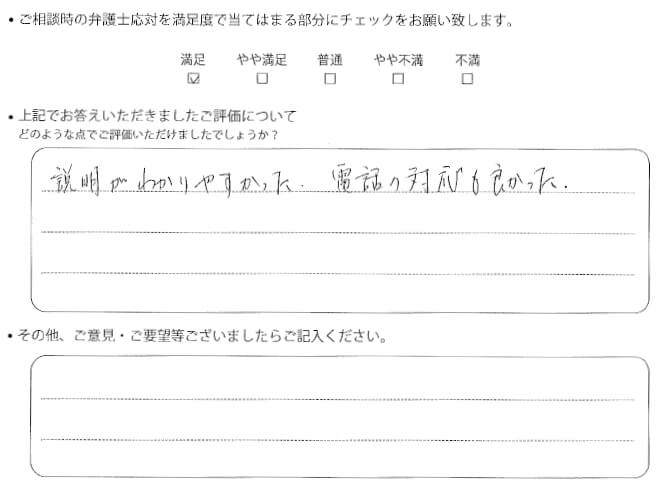 • ご相談時の弁護士応対を満足度で当てはまる部分にチェックをお願い致します。
満足 やや満足 普通 やや不満 不満
☑ ☐ ☐ ☐ ☐
• 上記でお答えいただきましたご評価について
どのような点でご評価いただけましたでしょうか?
説明がわかりやすかった. 電話の対応も良かった.
• その他、ご意見・ご要望等ございましたらご記入ください。